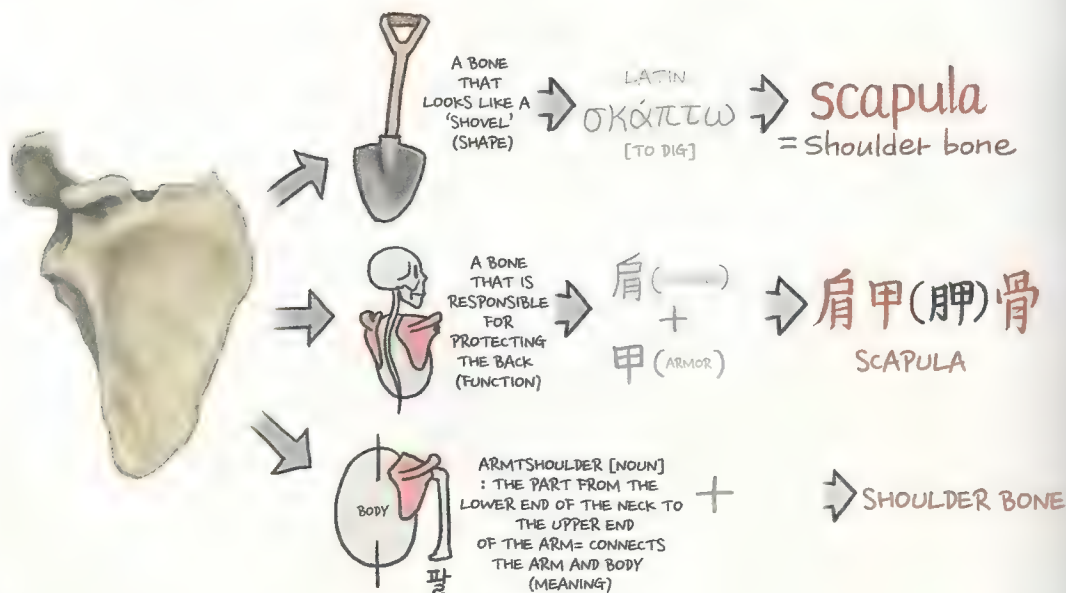 A BONE
THAT
LOOKS LIKE A
'SHOVEL'
(SHAPE)
LATIN
σκάπτω
[TO DIG]
scapula
= Shoulder bone
A BONE
THAT IS
RESPONSIBLE
FOR
PROTECTING
THE BACK
(FUNCTION)
肩( )
+
甲(ARMOR)
肩甲(胛)骨
SCAPULA
BODY
팔
ARMTSHOULDER [NOUN]
: THE PART FROM THE
LOWER END OF THE NECK TO
THE UPPER END
OF THE ARM= CONNECTS
THE ARM AND BODY
(MEANING)
+
SHOULDER BONE